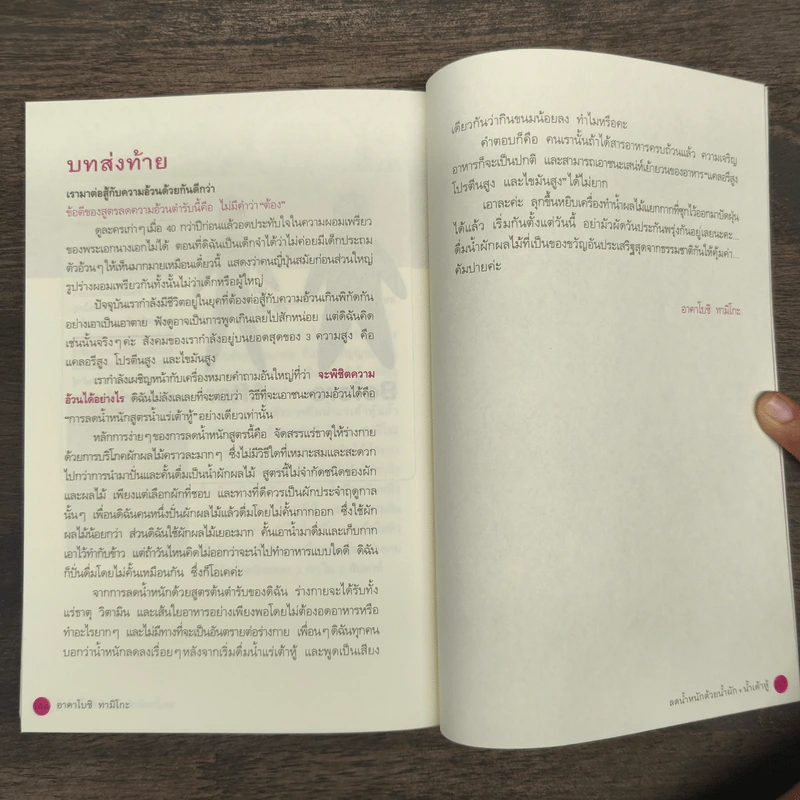 บทส่งท้าย
เรามาต่อสู้กับความอ้วนด้วยกันดีกว่า
ข้อดีของสูตรลดความอ้วนตำรับนี้คือ ไม่มีคำว่า "ต้อง"
ดูละครเก่าๆ เมื่อ 40 กว่าปีก่อนแล้วอดประทับใจในความผอมเพรียว
ของพระเอกนางเอกไม่ได้ ตอนที่ดิฉันเป็นเด็กจำได้ว่าไม่ค่อยมีเด็กประถม
ตัวอ้วนๆ ให้เห็นมากมายเหมือนเดี๋ยวนี้ แสดงว่าคนญี่ปุ่นสมัยก่อนส่วนใหญ่
รูปร่างผอมเพรียวกันทั้งนั้นไม่ว่าเด็กหรือผู้ใหญ่
ปัจจุบันเรากำลังมีชีวิตอยู่ในยุคที่ต้องต่อสู้กับความอ้วนเกินพิกัดกัน
อย่างเอาเป็นเอาตาย ฟังดูอาจเป็นการพูดเกินเลยไปสักหน่อย แต่ดิฉันคิด
เช่นนั้นจริงๆ ค่ะ สังคมของเรากำลังอยู่บนยอดสุดของ 3 ความสูง คือ
แคลอรีสูง โปรตีนสูง และไขมันสูง
เรากำลังเผชิญหน้ากับเครื่องหมายคำถามอันใหญ่ที่ว่า จะพิชิตความ
อ้วนได้อย่างไร ดิฉันไม่ลังเลเลยที่จะตอบว่า วิธีที่จะเอาชนะความอ้วนได้คือ
"การลดน้ำหนักสูตรน้ำแร่เต้าหู้" อย่างเดียวเท่านั้น
หลักการง่ายๆ ของการลดน้ำหนักสูตรนี้คือ จัดสรรแร่ธาตุให้ร่างกาย
ด้วยการบริโภคผักผลไม้คราวละมากๆ ซึ่งไม่มีวิธีใดที่เหมาะสมและสะดวก
ไปกว่าการนำมาปั่นและคั้นดื่มเป็นน้ำผักผลไม้ สูตรนี้ไม่จำกัดชนิดของผัก
และผลไม้ เพียงแต่เลือกผักที่ชอบ และทางที่ดีควรเป็นผักประจำฤดูกาล
นั้นๆ เพื่อนดิฉันคนหนึ่งปั่นผักผลไม้แล้วดื่มโดยไม่คั้นกากออก ซึ่งใช้ผัก
ผลไม้น้อยกว่า ส่วนดิฉันใช้ผักผลไม้เยอะมาก คั้นเอาน้ำมาดื่มและเก็บกาก
เอาไว้ทำกับข้าว แต่ถ้าวันไหนคิดไม่ออกว่าจะนำไปทำอาหารแบบใดดี ดิฉัน
ก็ปั่นดื่มโดยไม่คั้นเหมือนกัน ซึ่งก็โอเคค่ะ
จากการลดน้ำหนักด้วยสูตรต้นตำรับของดิฉัน ร่างกายจะได้รับทั้ง
แร่ธาตุ วิตามิน และเส้นใยอาหารอย่างเพียงพอโดยไม่ต้องอดอาหารหรือ
ทำอะไรยากๆ และไม่มีทางที่จะเป็นอันตรายต่อร่างกาย เพื่อนๆ ดิฉันทุกคน
บอกว่าน้ำหนักลดลงเรื่อยๆ หลังจากเริ่มดื่มน้ำแร่เต้าหู้ และพูดเป็นเสียง
อาคาโบชิ ทามิโกะ
เดียวกันว่ากินขนมน้อยลง ทำไมหรือคะ
คำตอบก็คือ คนเรานั้นถ้าได้สารอาหารครบถ้วนแล้ว ความเจริญ
อาหารก็จะเป็นปกติ และสามารถเอาชนะเสน่ห์เย้ายวนของอาหาร "แคลอรีสูง
โปรตีนสูง และไขมันสูง" ได้ไม่ยาก
เอาละค่ะ ลุกขึ้นหยิบเครื่องทำน้ำผลไม้แยกกากที่ซุกไว้ออกมาปัดฝุ่น
ได้แล้ว เริ่มกันตั้งแต่วันนี้ อย่ามัวผัดวันประกันพรุ่งกันอยู่เลยนะคะ...
ดื่มน้ำผักผลไม้ที่เป็นของขวัญอันประเสริฐสุดจากธรรมชาติกันให้คุ้มค่า...
คัมปายค่ะ
อาคาโบชิ ทามิโกะ
ลดน้ำหนักด้วยน้ำผัก + น้ำเต้าหู้